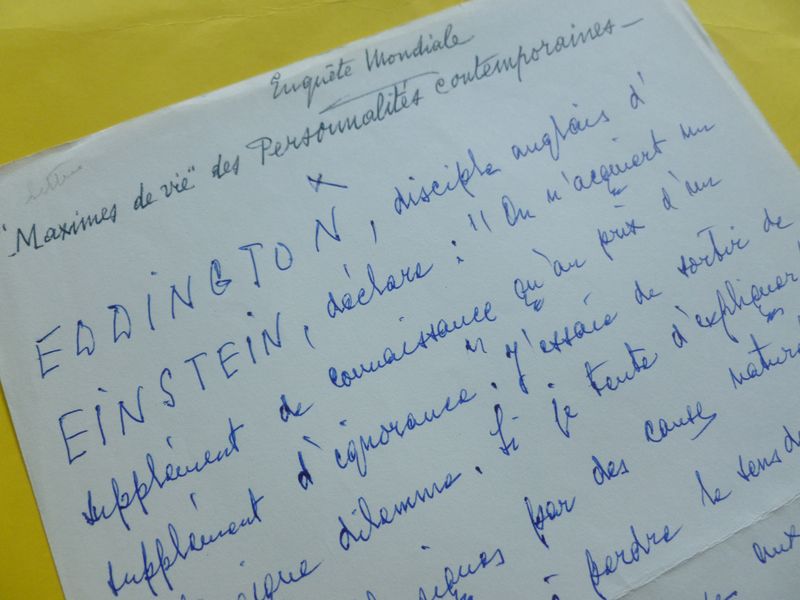 Enquête Mondiale
"Maximes de vie" des Personnalités contemporaines -
EDDINGTON, disciple anglais d'
EINSTEIN, déclare : "On n'acquiert un
supplément de connaissance qu'au prix d'un
supplément d'ignorance." J'essaie de sortir de
dilemme. Si je tente d'expliquer
par des cause natura
à perdre le sens de
aux